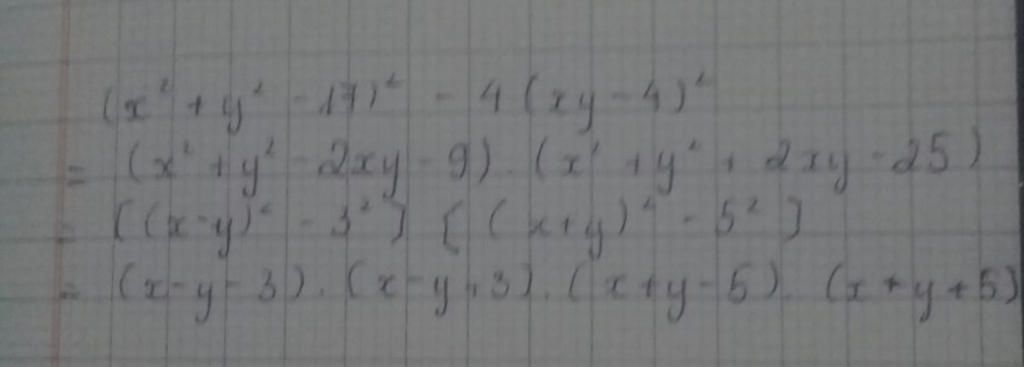 (x² + y² - 17)² - 4(xy - 4)²
= (x² + y² - 2xy - 9) . (x² + y² + 2xy - 25)
= [(x-y)² - 3²] [(x+y)² - 5²]
= (x - y - 3) . (x - y + 3) . (x + y - 5) . (x + y + 5)